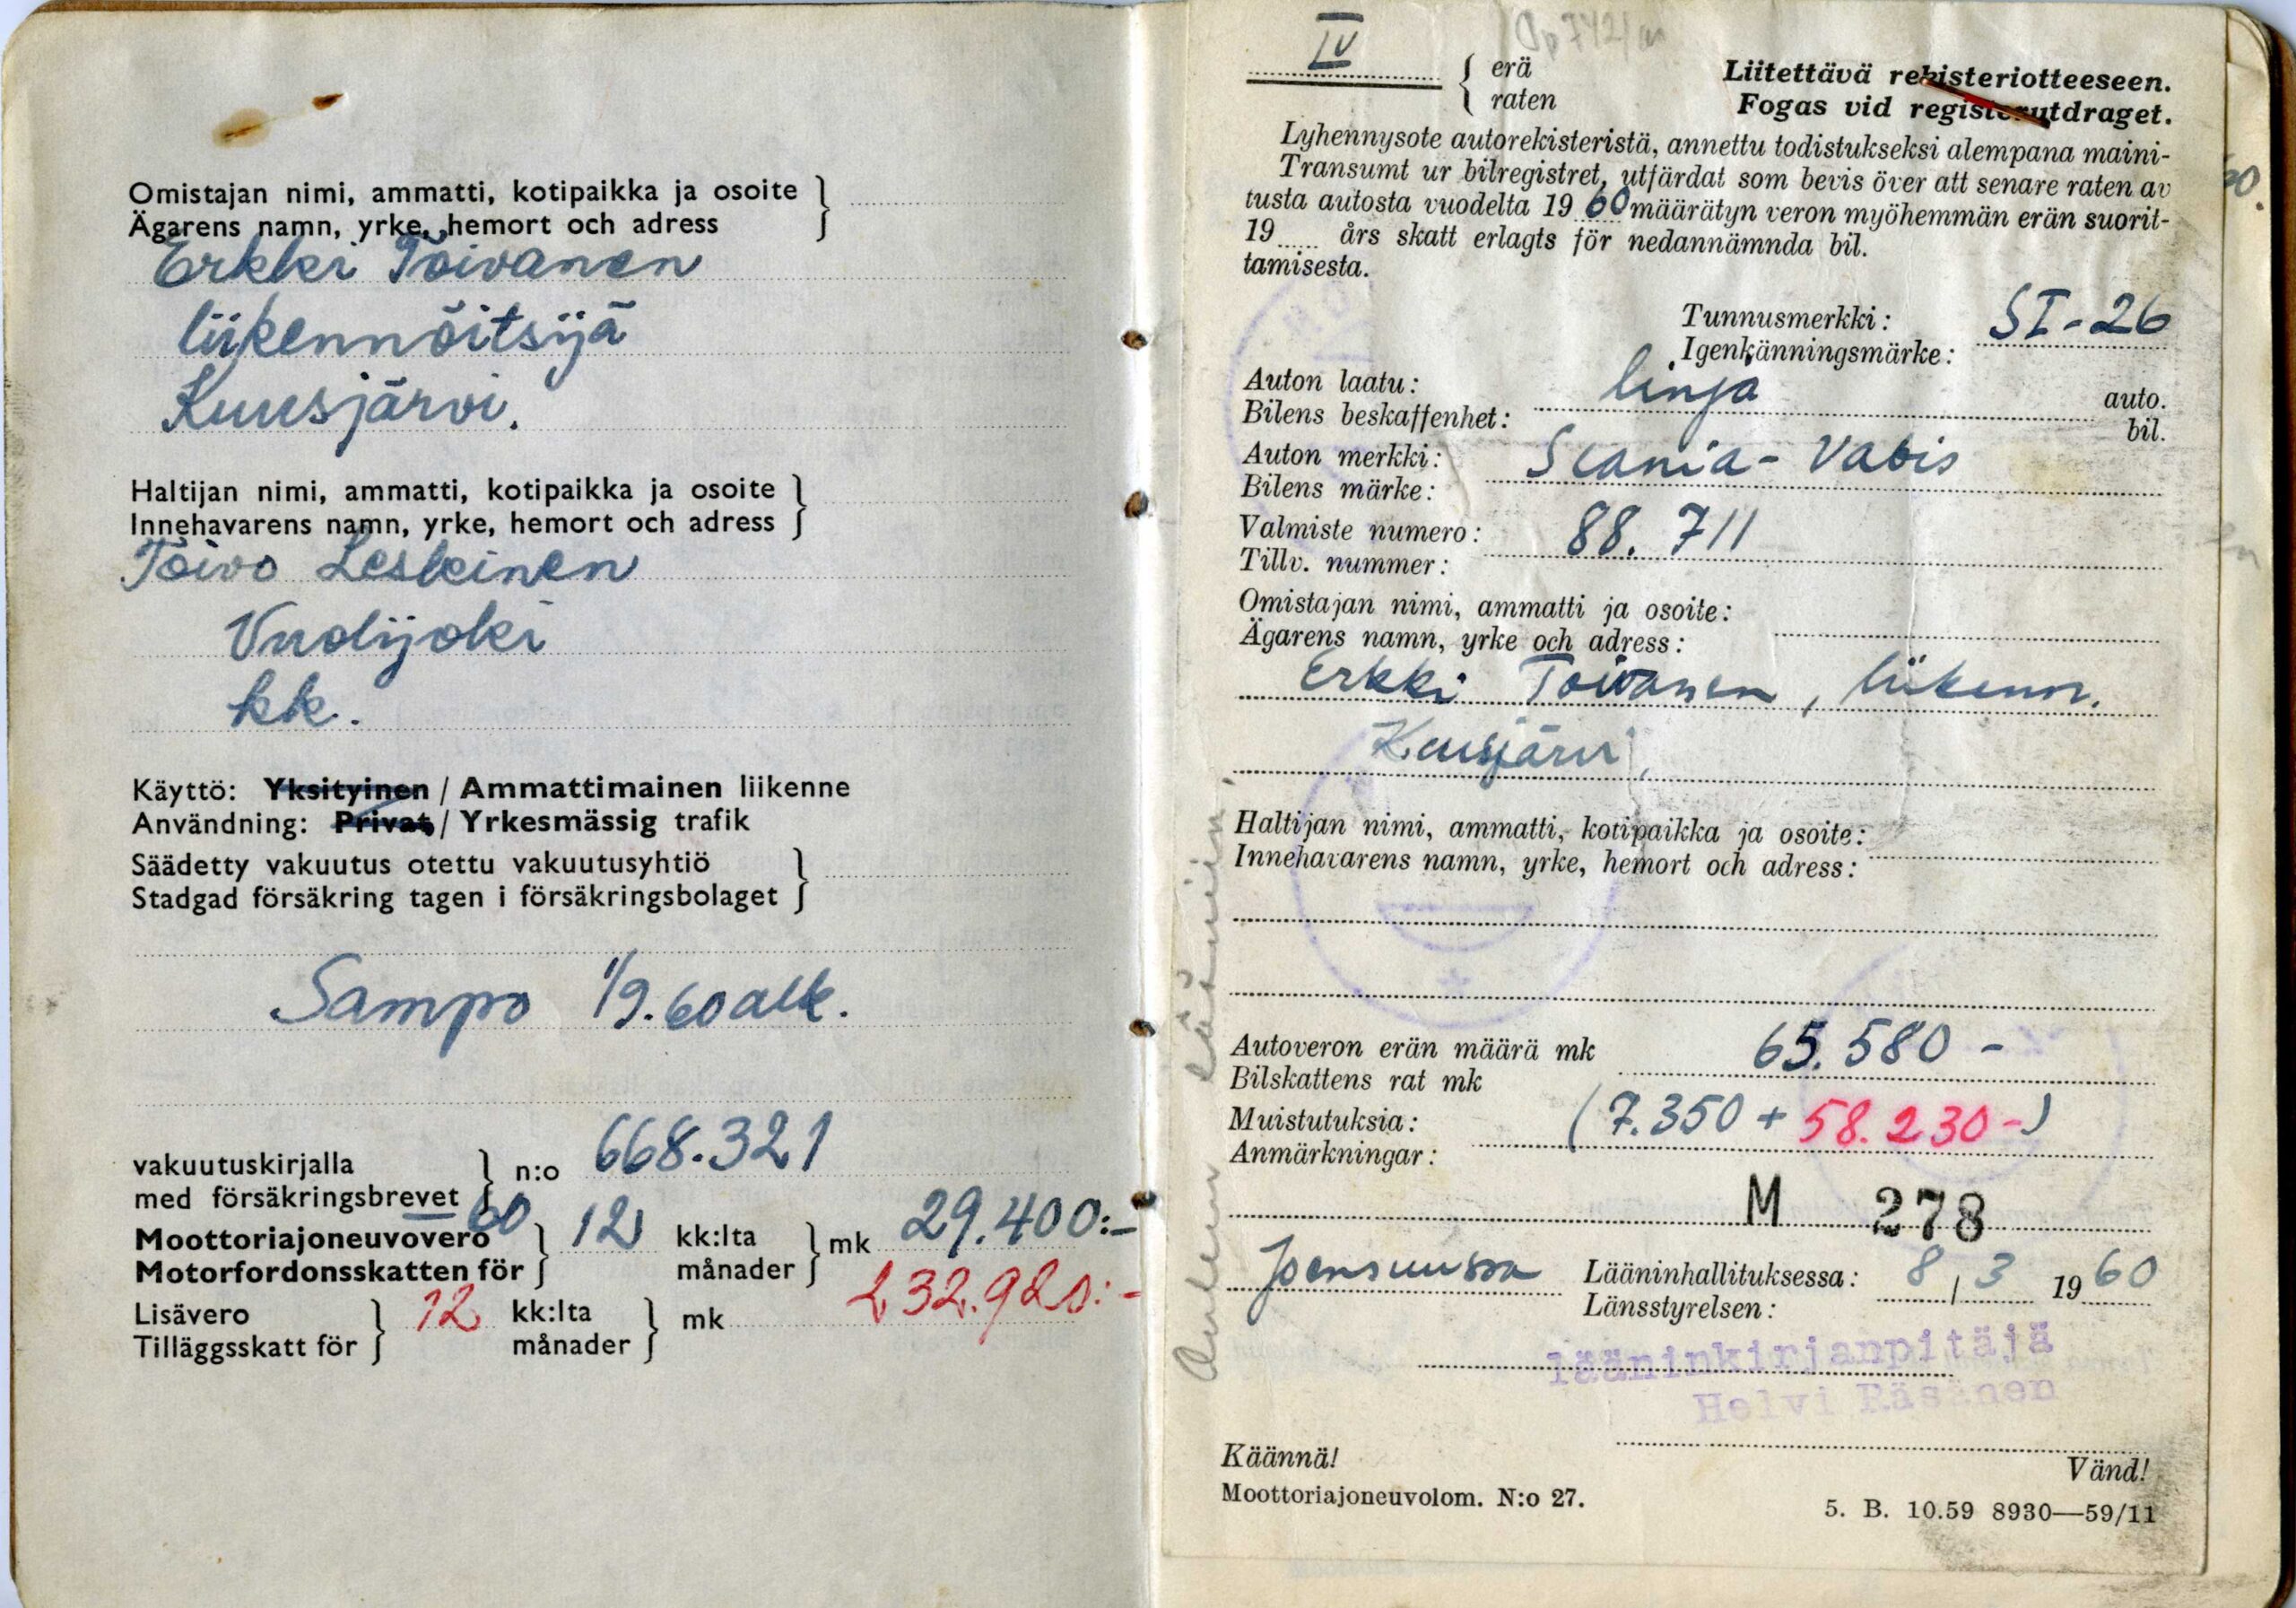 Omistajan nimi, ammatti, kotipaikka ja osoite
Ägarens namn, yrke, hemort och adress
Erkki Toivanen
liikennöitsijä
Kuusjärvi.
Haltijan nimi, ammatti, kotipaikka ja osoite
Innehavarens namn, yrke, hemort och adress
Toivo Leskinen
kk.
Käyttö: Yksityinen / Ammattimainen liikenne
Användning: Privat / Yrkesmässig trafik
Säädetty vakuutus otettu vakuutusyhtiö
Stadgad försäkring tagen i försäkringsbolaget
Sampo 1/9.60 alk.
vakuutuskirjalla
med försäkringsbrevet
n:o 668.321
Moottoriajoneuvovero 60 12 kk:lta mk 29.400:-
Motorfordonsskatten för månader
Lisävero 12 kk:lta mk 232.920:-
Tilläggsskatt för månader
IV erä
raten
Liitettävä rekisteriotteeseen.
Fogas vid registerutdraget.
Lyhennysote autorekisteristä, annettu todistukseksi alempana maini-
Transumt ur bilregistret, utfärdat som bevis över att senare raten av
tusta autosta vuodelta 1960 määrätyn veron myöhemmän erän suorit-
19..... års skatt erlagts för nedannämnda bil.
tamisesta.
Tunnusmerkki: SI-26
Igenkänningsmärke:
Auton laatu: linja auto.
Bilens beskaffenhet: bil.
Auton merkki: Scania-Vabis
Bilens märke:
Valmiste numero: 88.711
Tillv. nummer:
Omistajan nimi, ammatti ja osoite:
Ägarens namn, yrke och adress:
Erkki Toivanen, liikenn.
Kuusjärvi,
Haltijan nimi, ammatti, kotipaikka ja osoite:
Innehavarens namn, yrke, hemort och adress:
Autoveron erän määrä mk 65.580 -
Bilskattens rat mk
Muistutuksia: (7.350 + 58.230-)
Anmärkningar:
M 278
Joensuussa Lääninhallituksessa: 8 / 3 1960
Länsstyrelsen:
lääninkirjanpitäjä
Helvi Räsänen
Käännä!
Vänd!
Moottoriajoneuvolom. N:o 27.
5. B. 10.59 8930—59/11